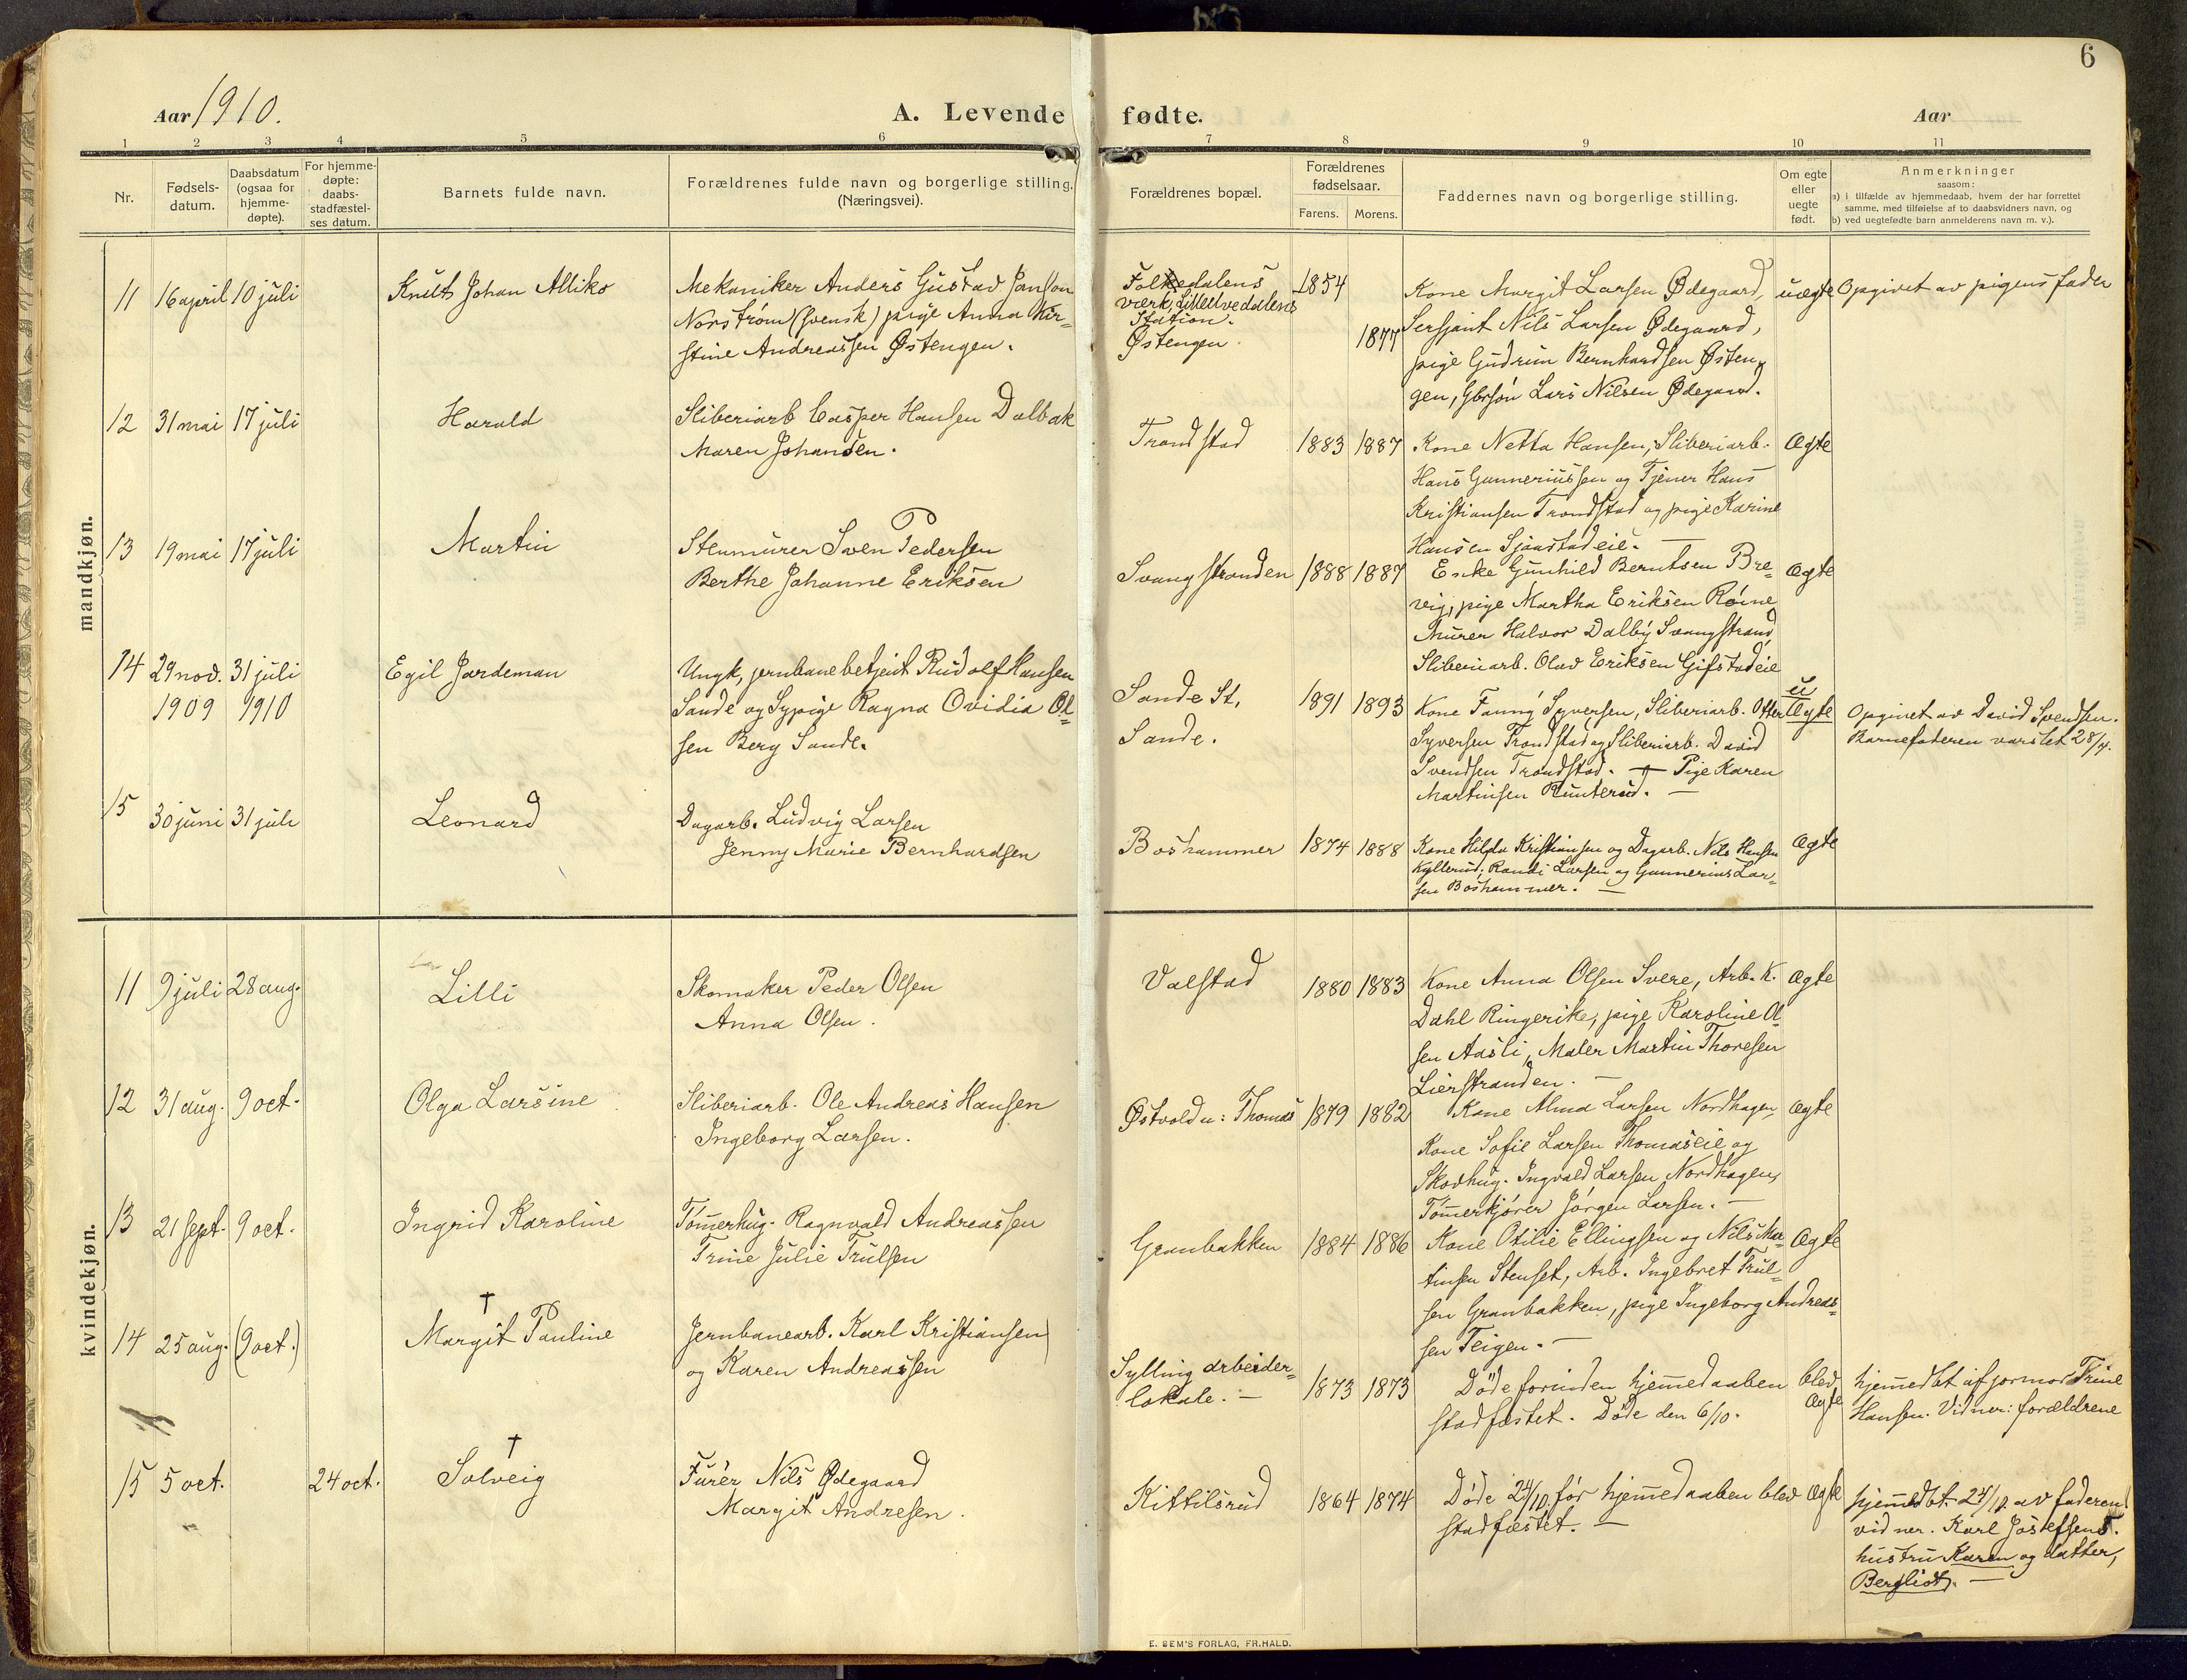 6
Aar 1910.
A. Levende fødte.
Aar
1 2 3 4 5 6 7 8 9 10 11
Nr.
Fødsels-
datum.
Daabsdatum
(ogsaa for
hjemme-
døpte).
For hjemme-
døpte:
daabs-
stadfæstel-
ses datum.
Barnets fulde navn.
Forældrenes fulde navn og borgerlige stilling.
(Næringsvei).
Forældrenes bopæl.
Forældrenes
fødselsaar.
Farens. Morens.
Faddernes navn og borgerlige stilling.
Om egte
eller
uegte
født.
Anmerkninger
saasom:
a) i tilfælde av hjemmedaab, hvem der har forrettet
samme, med tilføielse af to daabsvidners navn, og
b) ved uegtefødte barn anmelderens navn m. v.).
mandkjøn.
11 16 april 10 juli
Knut Johan Alliko
Mekaniker Anders Gustav Janson
Norström (svensk) pige Anna Kir-
stine Andreassen Østengen.
Station.
Østengen.
1854
1877
Kone Margit Larsen Ødegaard,
Sersjant Nils Larsen Ødegaard,
pige Gudrun Bernhardsen Østen-
gen, Gbrsøn Lars Nilsen Ødegaard.
uægte
Opgivet av pigens fader
12 31 mai 17 juli
Harald
Sliberiarb Casper Hansen Dalbak
Maren Johansen.
Trondstad
1883 1887
Kone Netta Hansen, Sliberiarb.
Hans Gunneriussen og Tjener Hans
Kristiansen Trondstad og pige Karine
Hansen Sjaastadeie. —
Ægte
13 19 mai 17 juli
Martin
Stenmurer Sven Pedersen
Berthe Johanne Eriksen
Svangstranden
1888 1887
Enke Gunhild Berntsen Bre-
veig, pige Martha Eriksen Røine
Murer Halvor Dalby Svangstrand,
Sliberiarb. Olav Eriksen Gifstadeie
Ægte
14 29 nov. 31 juli
1909 1910
Egil Jardeman
Ungk, jernbanebetjent Rudolf Hansen
Sande og Sypige Ragna Ovidia Ol-
sen Berg Sande.
Sande St.
Sande.
1891 1893
Kone Fanny Syversen, Sliberiarb. Otter
Syversen Trondstad og Sliberiarb. David
Svendsen Trondstad. — Pige Karen
Martinsen Runterud. —
u
Ægte
Opgivet av David Svendsen.
Barnefaderen varslet 28/7.
15 30 juni 31 juli
Leonard
Dagarb. Ludvig Larsen
Jenny Marie Bernhardsen
Boshammer
1874 1888
Kone Hilda Kristiansen og Dagarb. Nils Hansen
Kyllerud; Randi Larsen og Gunnerius Lar-
sen Boshammer. —
Ægte
kvindekjøn.
11 9 juli 28 aug.
Lilli
Skomaker Peder Olsen
Anna Olsen.
Valstad
1880 1883
Kone Anna Olsen Svere, Arb. K.
Dahl Ringerike, pige Karoline Ol-
sen Aasli, Maler Martin Thoresen
Lierstranden. —
Ægte
12 31 aug. 9 oct.
Olga Larsine
Sliberiarb. Ole Andreas Hansen
Ingeborg Larsen.
Østvold u: Thomas
1879 1882
Kone Alma Larsen Nordhagen,
Kone Sofie Larsen Thomaseie og
Skovhug. Ingvald Larsen Nordhagen,
Tømerkjører Jørgen Larsen. —
Ægte
13 21 sept. 9 oct.
Ingrid Karoline
Tømerhug. Ragnvald Andreassen
Trine Julie Trulsen
Granbakken
1884 1886
Kone Otilie Ellingsen og Nils Mar-
tinsen Stenset, Arb. Ingebret Trul-
sen Granbakken, pige Ingeborg Andreas-
sen Teigen. —
Ægte
14 25 aug. (9 oct.)
†
Margit Pauline
Jernbanearb. Karl Kristiansen
og Karen Andreassen
Sylling arbeider-
lokale. —
1873 1873
Døde forinden hjemmedaaben blev
stadfæstet. Døde den 6/10.
Ægte
hjemmedbt af jormor Trine
Hansen. Vidner: forældrene
15 5 oct. 24 oct.
†
Solveig
Furer Nils Ødegaard
Margit Andresen.
Kittilsrud
1864 1874
Døde 24/10. før hjemmedaaben blev
stadfæstet. —
Ægte
hjemmedbt. 24/10. av faderen
vidner. Karl Josefsens.
hustru Karen og datter,
Bergliot. —
E. SEM'S FORLAG, FR.HALD.